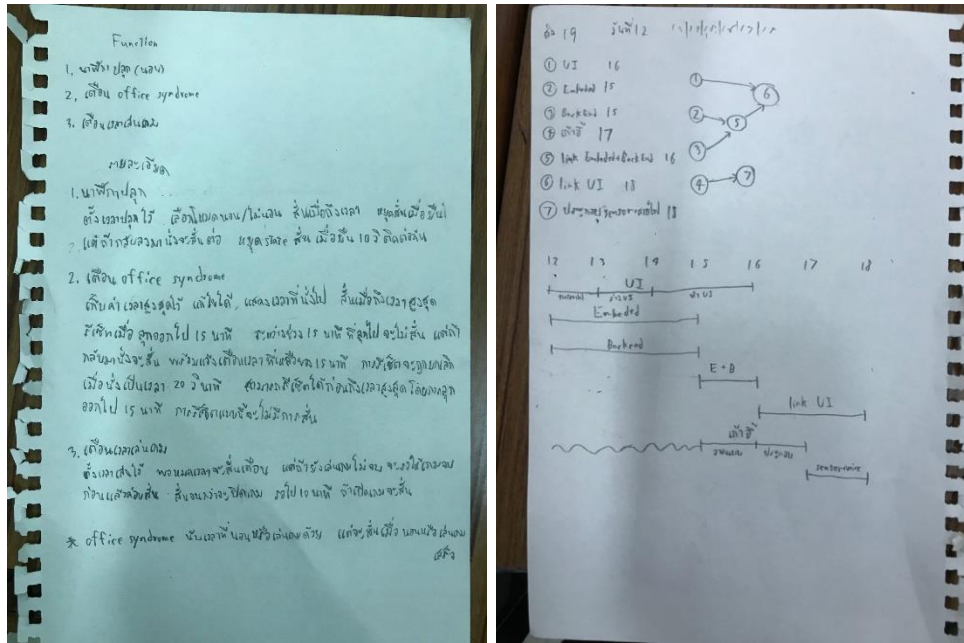 Function
1. นาฬิกาปลุก (นอน)
2. เตือน office syndrome
3. เตือนเวลาเล่นเกม
รายละเอียด
1. นาฬิกาปลุก
ตั้งเวลาปลุกไว้ เลือกโหมดนอน/ไม่นอน สั่นเมื่อถึงเวลา หยุดสั่นเมื่อยืน
แต่ถ้ากลับลงมานั่งจะสั่นต่อ หยุด state สั่น เมื่อยืน 10 วิติดต่อกัน
2. เตือน office syndrome
เก็บค่าเวลาสูงสุดไว้ แก้ไขได้, แสดงเวลาที่นั่งไป สั่นเมื่อถึงเวลาสูงสุด
รีเซ็ตเมื่อ ลุกออกไป 15 นาที ระหว่างช่วง 15 นาที ที่ลุกไป จะไม่สั่น แต่ถ้า
กลับมานั่งจะสั่น พร้อมแจ้งเตือนเวลาที่เหลือของ 15 นาที การรีเซ็ตจะถูกยกเลิก
เมื่อนั่งเป็นเวลา 20 วินาที สามารถรีเซ็ตได้ก่อนถึงเวลาสูงสุด โดยการลุก
ออกไป 15 นาที การรีเซ็ตแบบนี้จะไม่มีการสั่น
3. เตือนเวลาเล่นเกม
ตั้งเวลาเล่นไว้ พอหมดเวลาจะสั่นเตือน แต่ถ้ายังเล่นเกมไม่จบ จะรอให้เกมจบ
ก่อนแล้วค่อยสั่น สั่นจนกว่าจะปิดเกม รอไป 10 นาที ถ้าเปิดเกมจะสั่น
* office syndrome นับเวลาที่นอนหรือเล่นเกมด้วย แต่จะสั่นเมื่อ นอนหรือเล่นเกม
เสร็จ
19 วันที่ 12
① UI 16
② Embeded 15
③ Backend 15
④ เก้าอี้ 17
⑤ link Embeded+Backend 16
⑥ link UI 18
⑦ 18
1 6
2 5
3
4 7
12 13 14 15 16 17 18
UI
ทำ UI
Embeded
Backend
E + B
link UI
เก้าอี้
ประกอบ